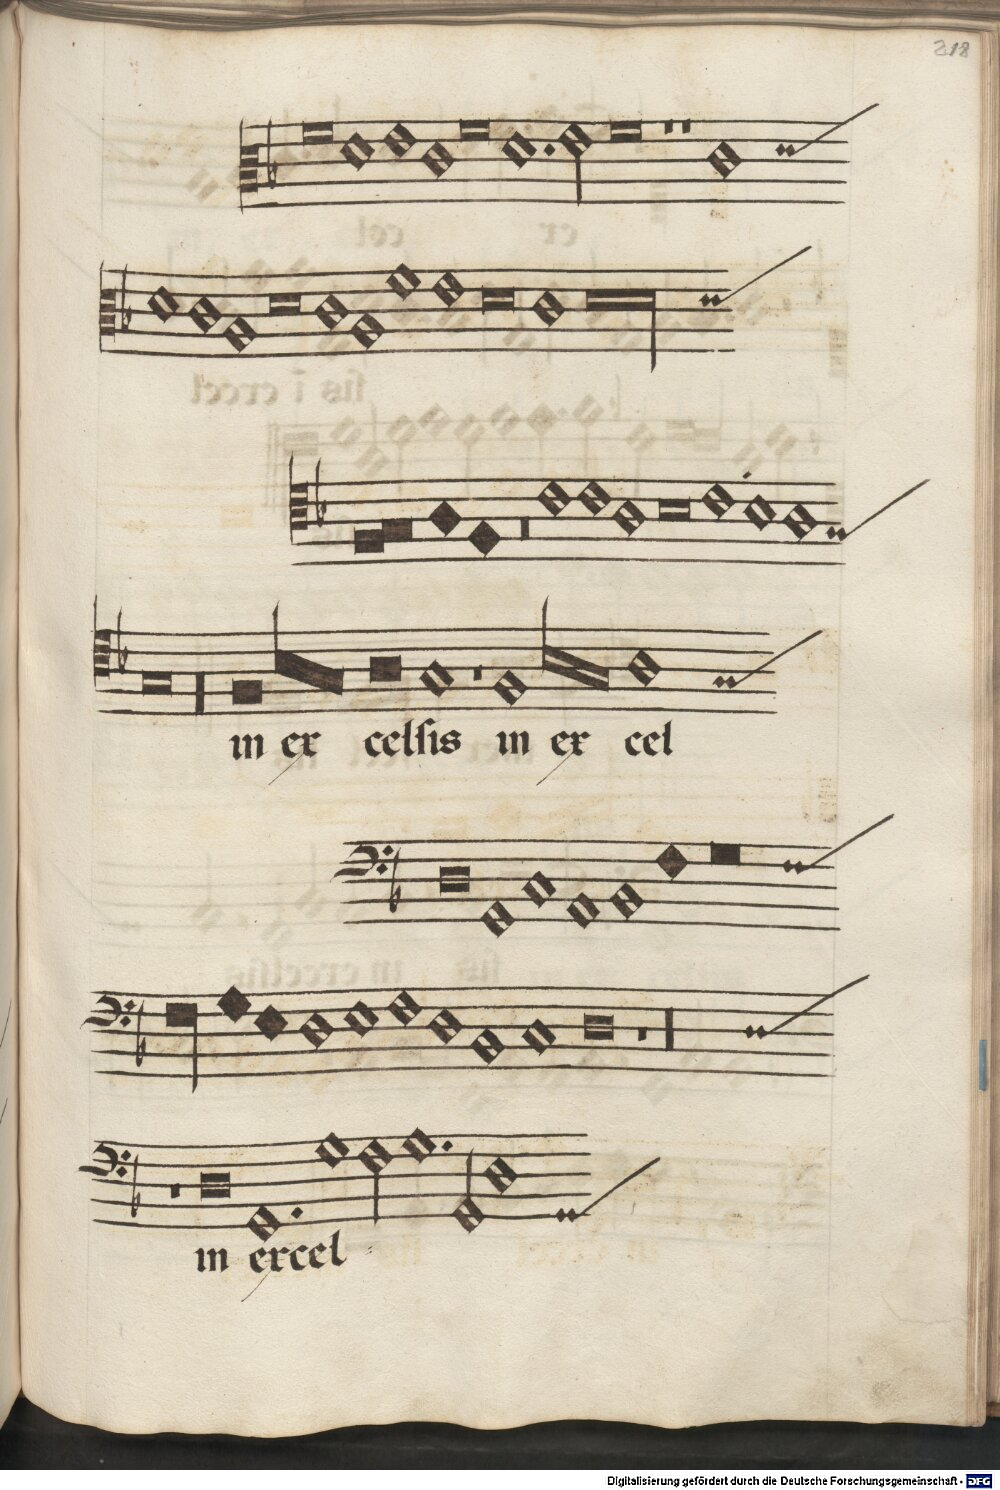 218
in ex celsis in ex cel
in excel
Digitalisierung gefördert durch die Deutsche Forschungsgemeinschaft - DFG